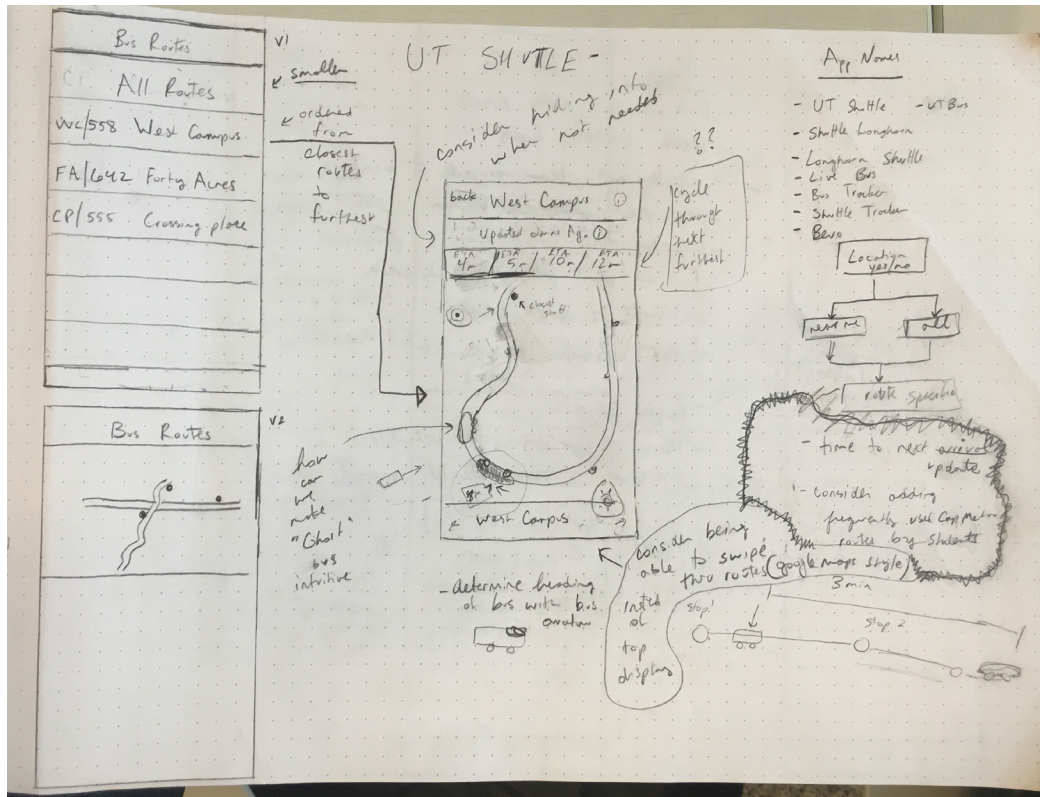 Bus Routes
All Routes
WC/558 West Campus
FA/642 Forty Acres
CP/555 Crossing place
V1
smaller
ordered
from
closest
routes
to
furthest
Bus Routes
V2
how
can
we
make
"Ghost"
bus
intuitive
UT SHUTTLE -
consider hiding into
when not needed
??
cycle
through
next
furthest
back West Campus
Updated Ago
ETA ETA ETA ETA
4m 5m 10m 12m
closest
West Campus
- determine heading
of bus with bus
consider being
able to swipe
thru routes (google maps style)
top
display
App Names
- UT Shuttle - UT Bus
- Shuttle Longhorn
- Longhorn Shuttle
- Live Bus
- Bus Tracker
- Shuttle Tracker
- Bevo
Location
yes/no
near me all
route specific
- time to next arrival
update
- consider adding
frequently used Cap Metro
routes by students
3 min
Stop 1
Stop 2